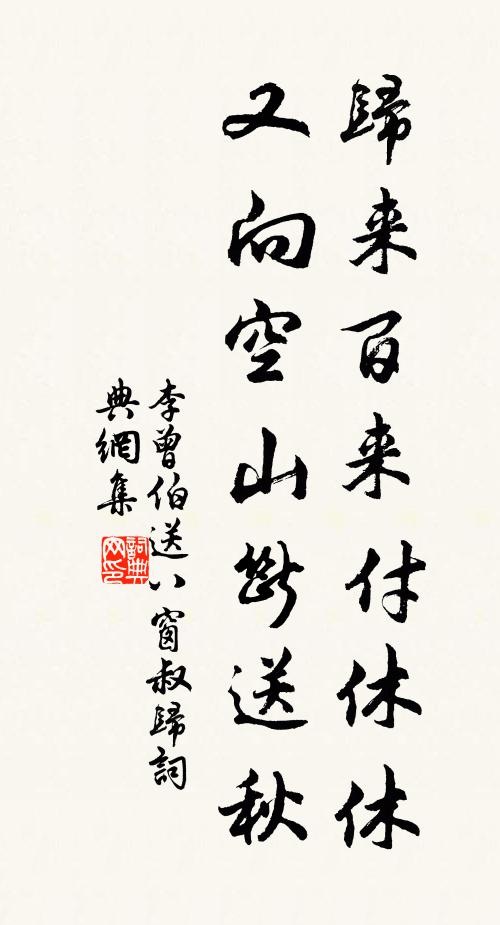 歸来百来付休休
又向空山斷送秋
李曾伯送八窗叔歸詞
典網集
詞典网印